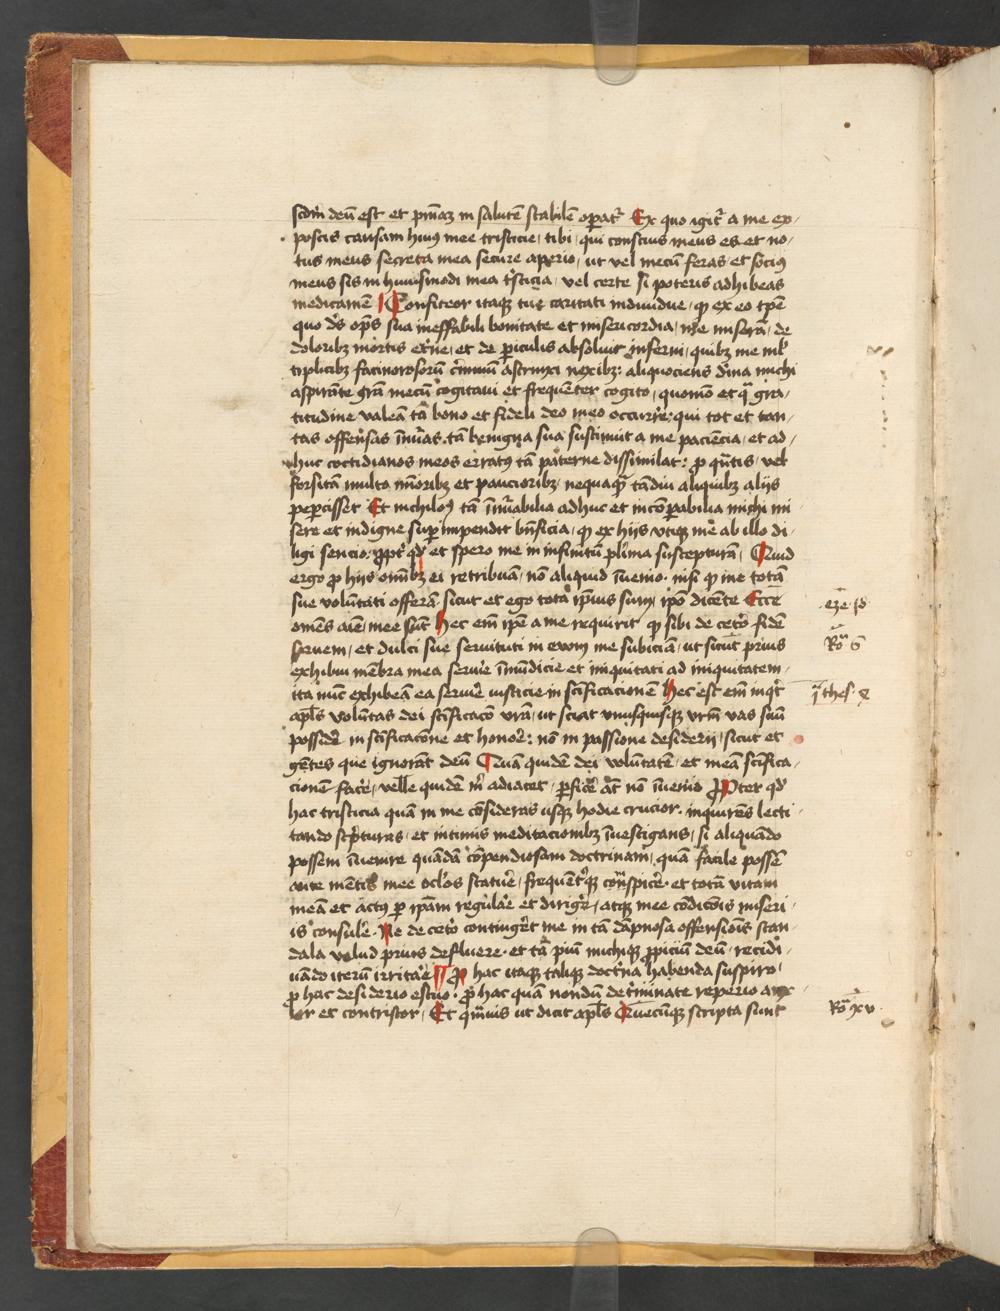 scdm deū est et pniaʒ in salutē stabilē operat᷑ Ex quo igit᷑ a me ex-
poscis causam huiꝰ mee tristicie, tibi, qui consciꝰ meus es et no-
tus meus secreta mea secure aperio, ut vel mecū feras et sociꝰ
meus sis in huiusmodi mea tristicia, vel certe si poteris adhibeas
medicamē Confiteor itaqꝫ tue caritati indiuidue, ꝙ ex eo tꝑe
quo ds̄ oꝑs sua ineffabili bonitate et misericordia, me miserā, de
doloribꝫ mortis et̄ne, et de ꝑiculis absoluit inferni, quibꝫ me ml̄
tiplicibꝫ facinorosorū c̄minum astrinxi nexibꝫ: aliquociens diuina michi
aspirāte grām mecū cogitaui et frequēter cogito, quomō et qͣ gra-
titudine valeā tā bono et fideli deo meo occurrē: qui tot et tan-
tas offensas īniꝰas tā benigna sua sustinuit a me paciēcia, et ad-
huc cottidianos meos erratus tā paterne dissimilat: ꝓ qͣntis, vel
forsitā multo mīoribꝫ et paucioribꝫ, nequaqͣꝫ tādiu aliquibꝫ alijs
pepercisset Et nichilomꝰ tā inumabilia adhuc et incōꝑabilia michi mi
sere et indigne suꝑimpendit bn̄ficia, ꝙ ex hijs vtiqꝫ me ab illo di-
ligi sencio: ꝓpt᷑ qd᷑ et spero me in infinitū pl᷑ima susceptura, Quid
ergo ꝓ hijs omībꝫ ei retribuā, nō aliquid īuenio. nisi ꝙ me totā
sue volūtati offerā sicut et ego tota ipsius sum, ipō dicēte Ecce
omēs aīe, mee sūt Hec em̄ ipe a me requirit ꝙ sibi de cetero fidē
seruem, et dulci sue seruituti in euum me subiciā, ut sicut prius
exhibui mēbra mea seruire īmūdicie et iniquitati ad iniquitatem,
ita nūc exhibeā ea seruire iusticie in scīficacionē Hec est em̄ inqt
apl̄s volūtas dei scīficacō vrā, ut sciat vnusquisqꝫ vrm̄ vas suū
possidē in scīficacōne et honore: nō in passione desiderij, sicut et
gētes que ignorāt deū Quā quidē dei volūtatē, et meā scīfica-
cionē facere, velle quidē m̄ adiacet, ꝑficere at̄ nō īuenio Propter qd᷑
hac tristicia quā in me cōsideras usqꝫ hodie crucior. inquirēs lecti-
tando scpturas, et intimis meditacionibꝫ īuestigans, si aliquādo
possem īuenire quādā cōpendiosam doctrinam, quā facile possē
ante mētis mee oclos statuere, frequēt᷑qꝫ conspicere. et totā vitam
meā et actꝰ ꝑ ipam regulare et dirigere, atqꝫ mee cōdicōis miseri-
is consulere. Ne de cetero contingeret me in tā dāpnosa offensionis scan-
dala velud prius defluere. et tā piū michiqꝫ ꝓpiciū deū, recidi-
uādo iterū irritare Pro hac itaqꝫ taliqꝫ doctrina habenda suspiro,
ꝓ hac desiderio estuo. ꝓ hac quā nondū det᷑minate reperio anx-
ior et contristor, Et qͣmuis ut dicit apl̄s Quecūqꝫ scripta sunt
eze. 18
Ro 6
1 thes. 4
Ro xv